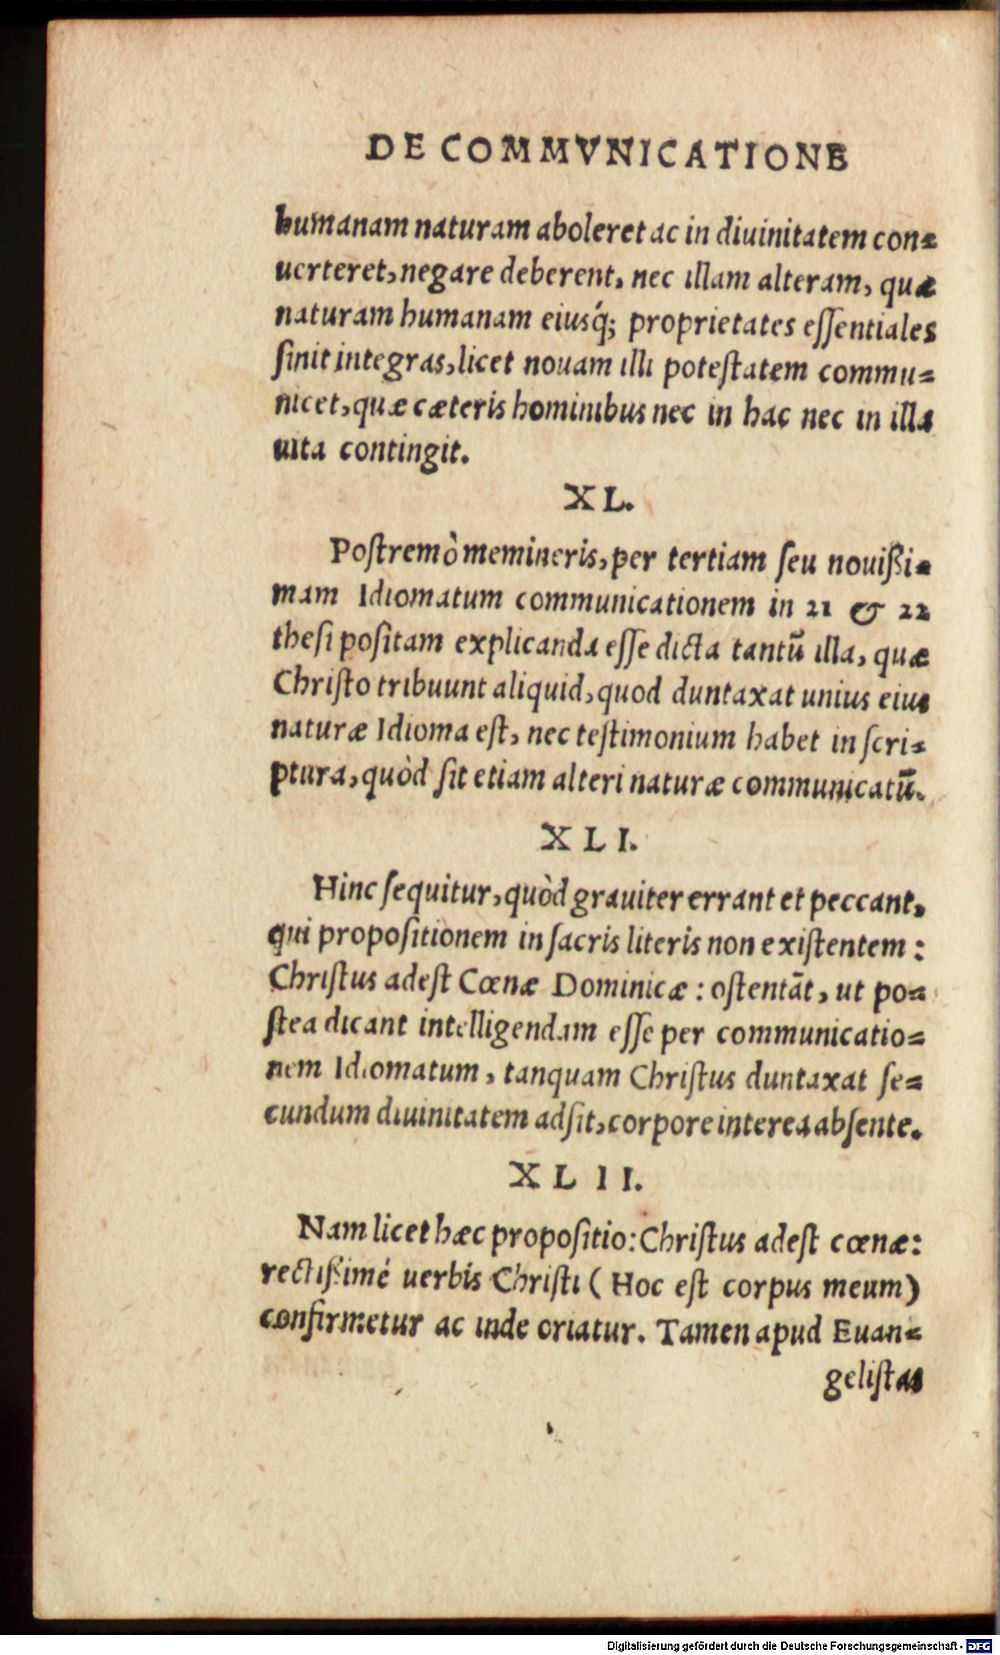 DE COMMVNICATIONE
humanam naturam aboleret ac in diuinitatem con⸗
uerteret, negare deberent, nec illam alteram, quæ
naturam humanam eiusq́; proprietates eſſentiales
ſinit integras, licet nouam illi poteſtatem commu⸗
nicet, quæ cæteris hominibus nec in hac nec in illa
uita contingit.
XL.
Poſtremò memineris, per tertiam ſeu nouißi⸗
mam Idiomatum communicationem in 21 & 22
theſi poſitam explicanda eſſe dicta tantū illa, quæ
Chriſto tribuunt aliquid, quod duntaxat unius eius
naturæ Idioma eſt, nec teſtimonium habet in ſcri⸗
ptura, quòd ſit etiam alteri naturæ communicatū.
XLI.
Hinc ſequitur, quòd grauiter errant et peccant,
qui propoſitionem in ſacris literis non exiſtentem:
Chriſtus adeſt Cœnæ Dominicæ: oſtentāt, ut po⸗
ſtea dicant intelligendam eſſe per communicatio⸗
nem Idiomatum, tanquam Chriſtus duntaxat ſe⸗
cundum diuinitatem adſit, corpore interea abſente.
XLII.
Nam licet hæc propoſitio: Chriſtus adeſt cœnæ:
rectißimè uerbis Chriſti (Hoc eſt corpus meum)
confirmetur ac inde oriatur. Tamen apud Euan⸗
geliſtas
Digitalisierung gefördert durch die Deutsche Forschungsgemeinschaft - DFG